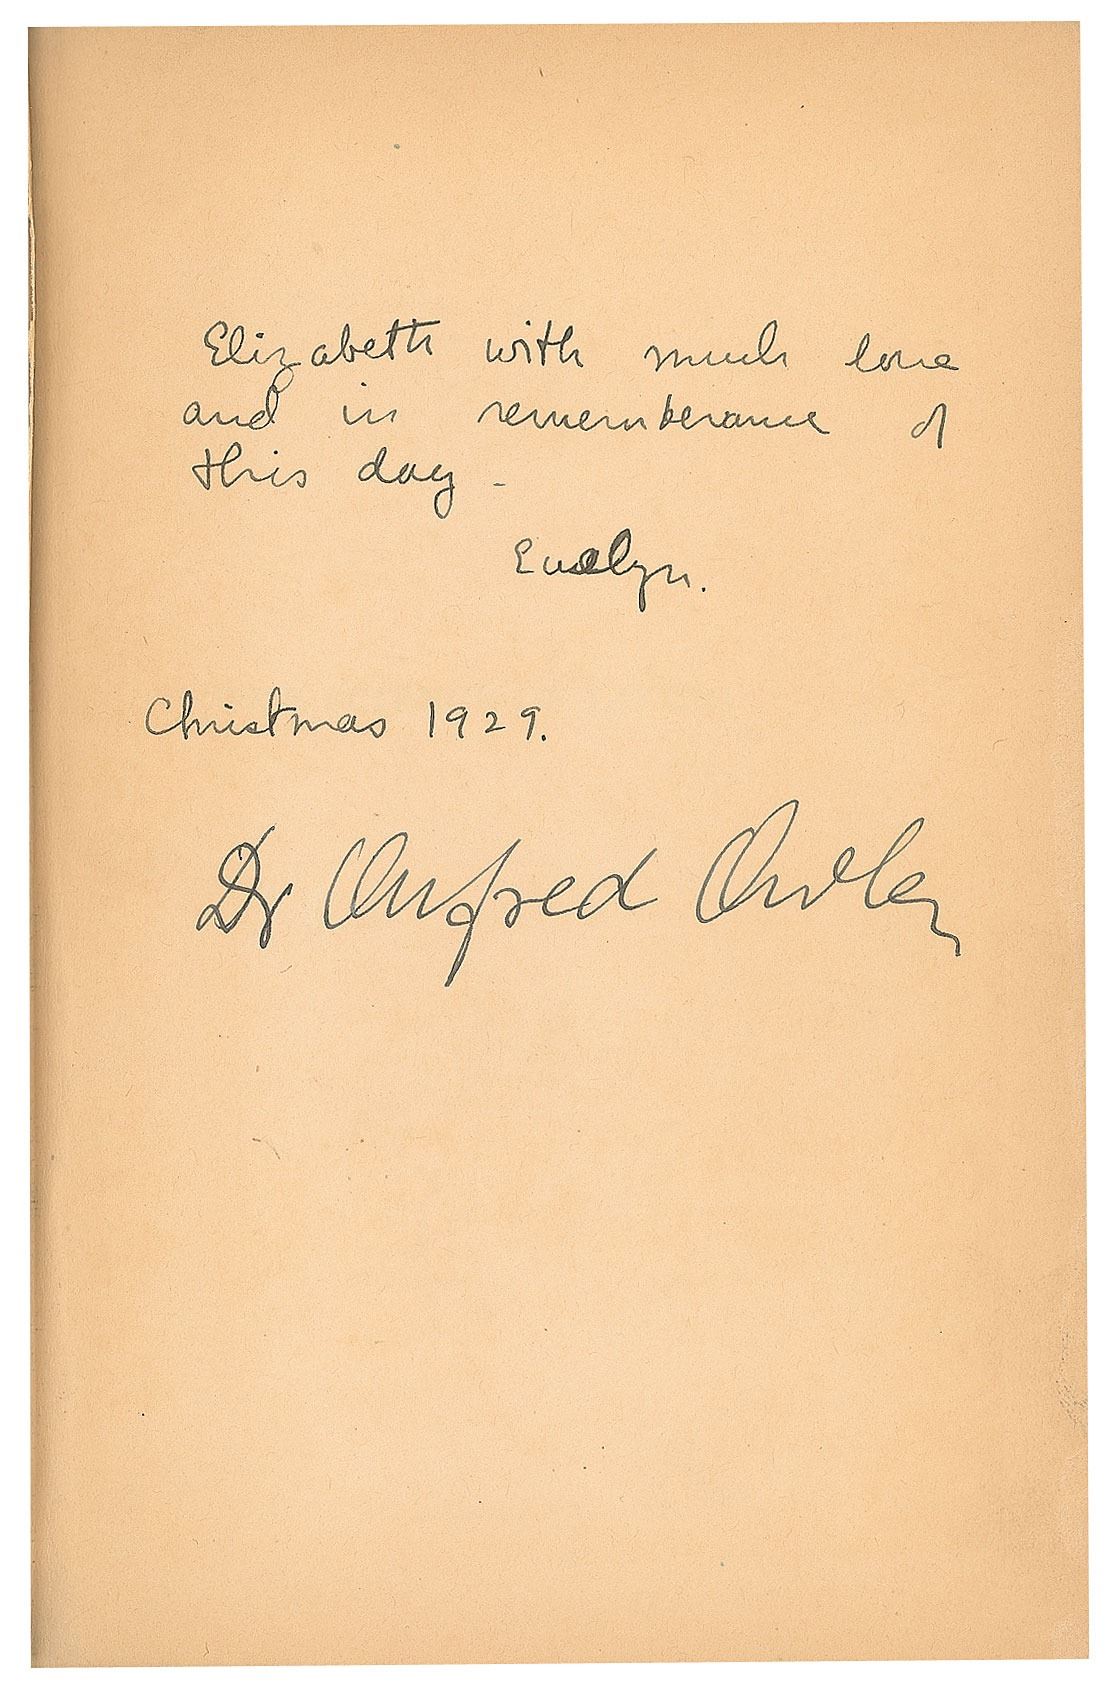 Elizabeth with much love
and in rememberance of
this day -
Evelyn.
Christmas 1929.
Dr Alfred Adler